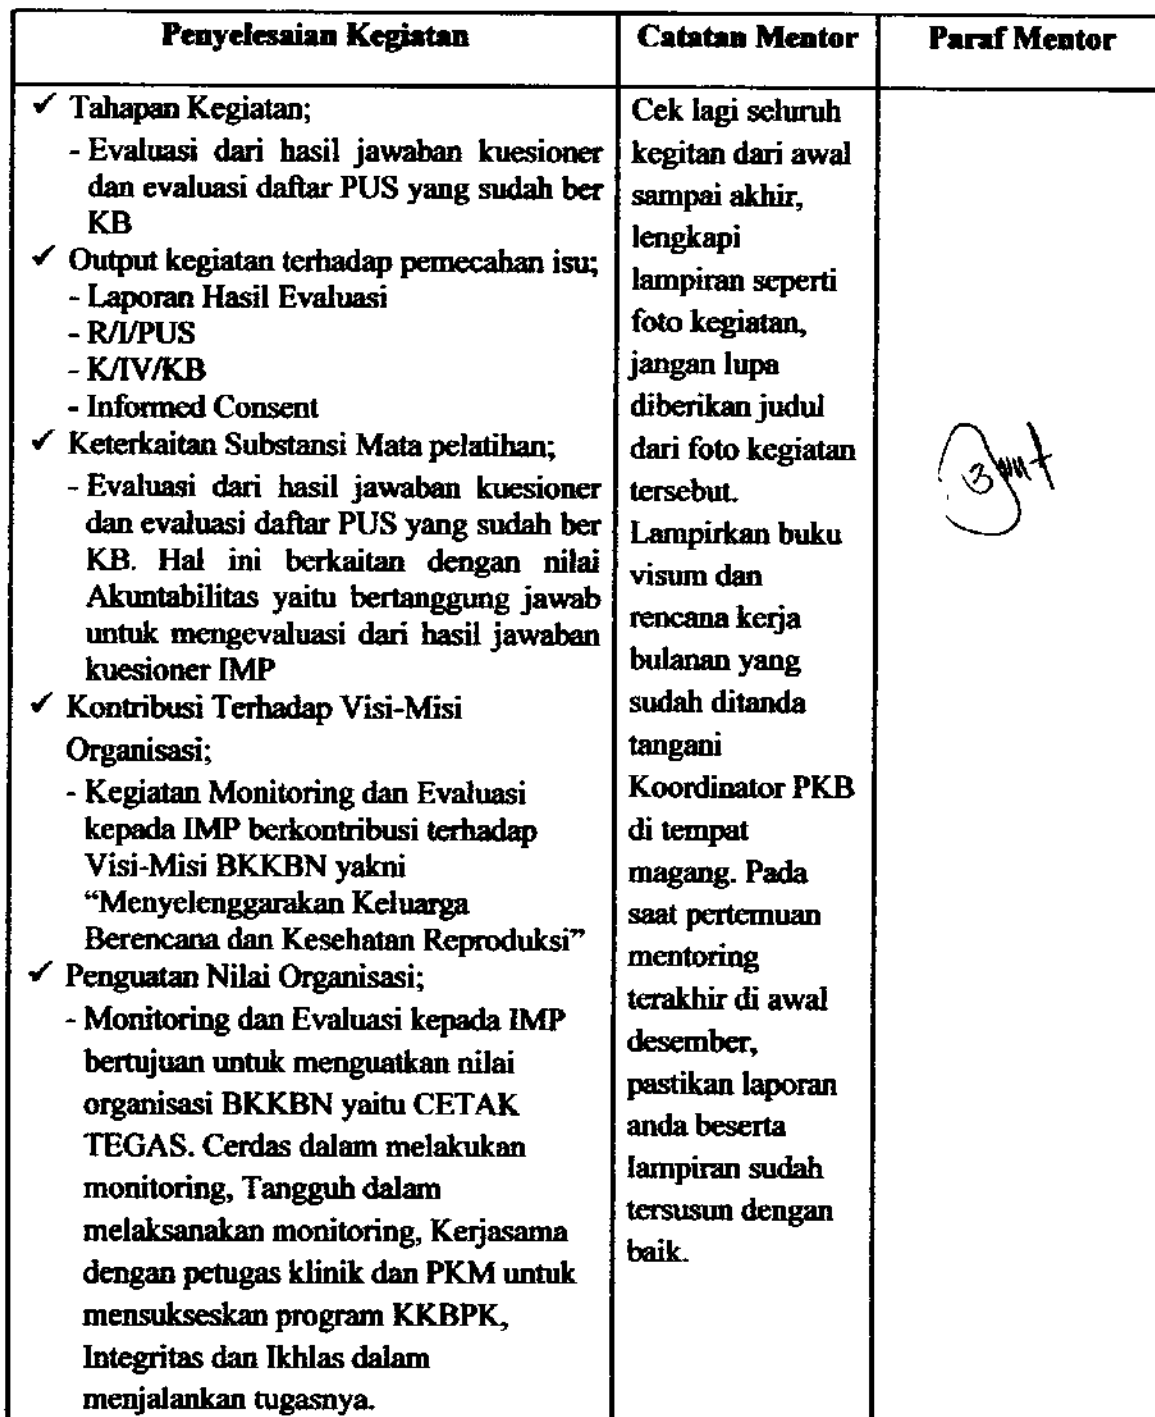 Penyelesaian Kegiatan
Catatan Mentor
Paraf Mentor
✓ Tahapan Kegiatan;
- Evaluasi dari hasil jawaban kuesioner
dan evaluasi daftar PUS yang sudah ber
KB
✓ Output kegiatan terhadap pemecahan isu;
- Laporan Hasil Evaluasi
- R/I/PUS
- K/IV/KB
- Informed Consent
✓ Keterkaitan Substansi Mata pelatihan;
- Evaluasi dari hasil jawaban kuesioner
dan evaluasi daftar PUS yang sudah ber
KB. Hal ini berkaitan dengan nilai
Akuntabilitas yaitu bertanggung jawab
untuk mengevaluasi dari hasil jawaban
kuesioner IMP
✓ Kontribusi Terhadap Visi-Misi
Organisasi;
- Kegiatan Monitoring dan Evaluasi
kepada IMP berkontribusi terhadap
Visi-Misi BKKBN yakni
“Menyelenggarakan Keluarga
Berencana dan Kesehatan Reproduksi”
✓ Penguatan Nilai Organisasi;
- Monitoring dan Evaluasi kepada IMP
bertujuan untuk menguatkan nilai
organisasi BKKBN yaitu CETAK
TEGAS. Cerdas dalam melakukan
monitoring, Tangguh dalam
melaksanakan monitoring, Kerjasama
dengan petugas klinik dan PKM untuk
mensukseskan program KKBPK,
Integritas dan Ikhlas dalam
menjalankan tugasnya.
Cek lagi seluruh
kegitan dari awal
sampai akhir,
lengkapi
lampiran seperti
foto kegiatan,
jangan lupa
diberikan judul
dari foto kegiatan
tersebut.
Lampirkan buku
visum dan
rencana kerja
bulanan yang
sudah ditanda
tangani
Koordinator PKB
di tempat
magang. Pada
saat pertemuan
mentoring
terakhir di awal
desember,
pastikan laporan
anda beserta
lampiran sudah
tersusun dengan
baik.